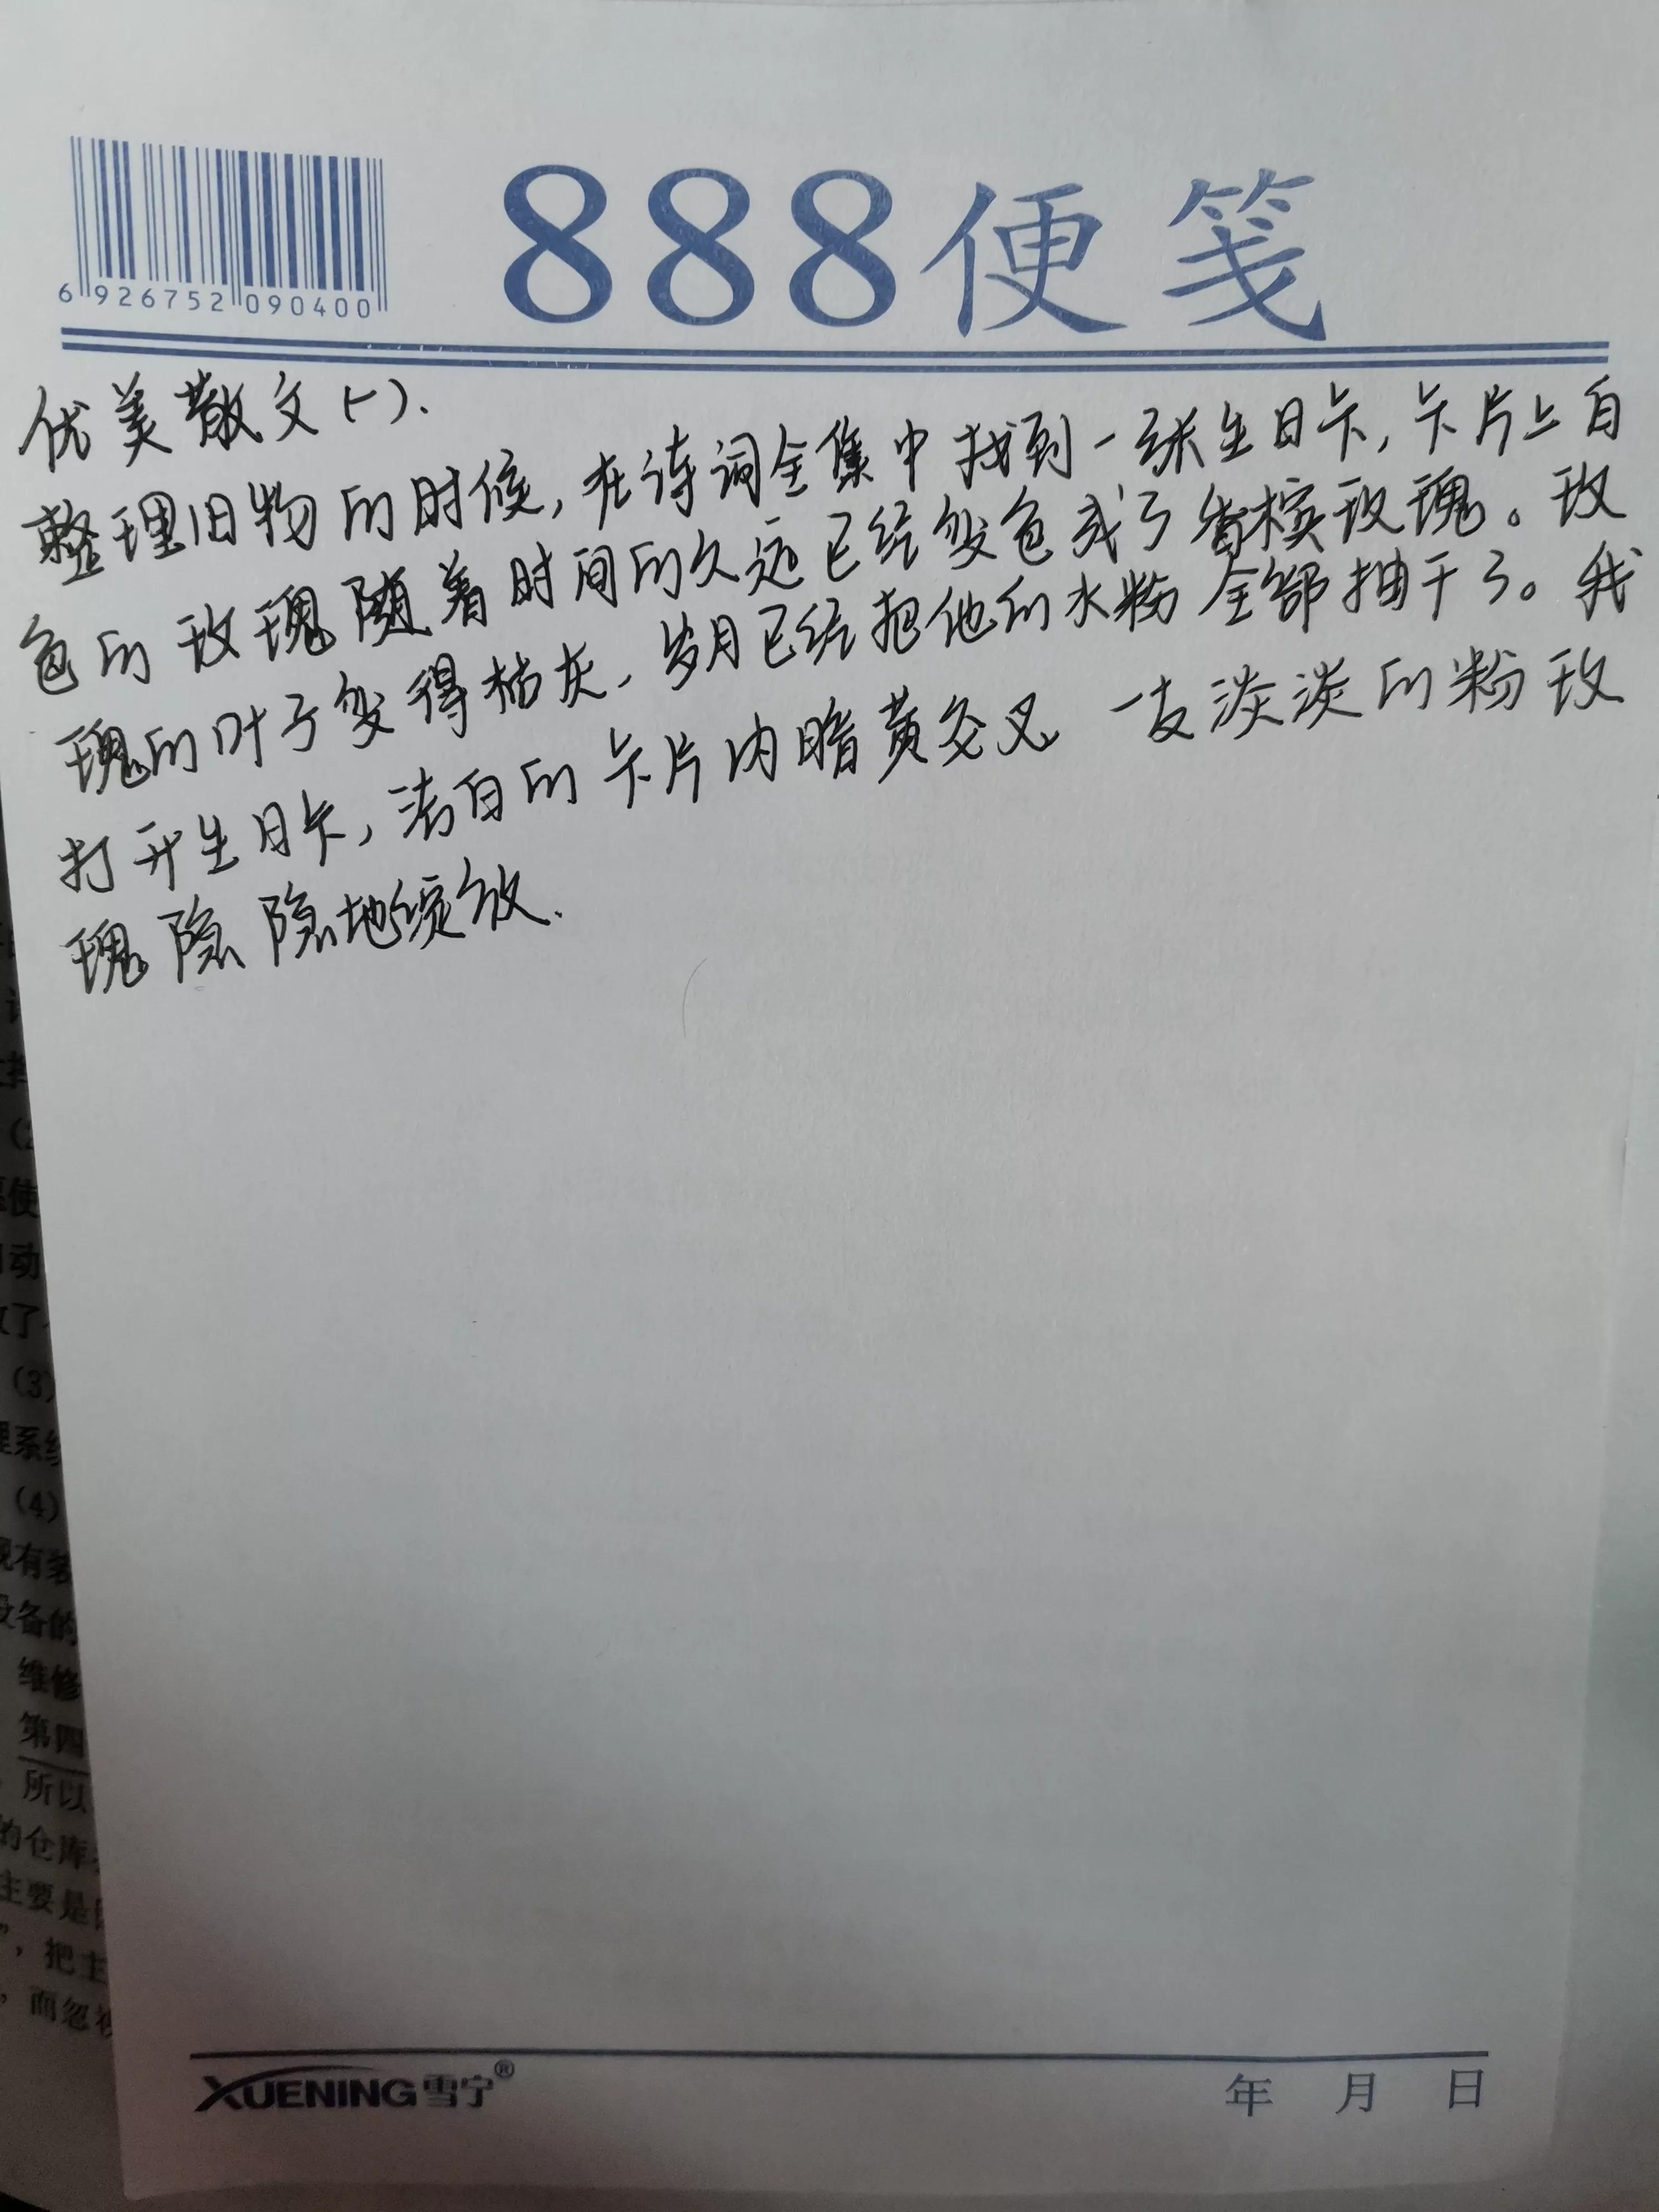 888便笺
6 926752 090400
优美散文(一).
整理旧物的时候,在诗词全集中找到一张生日卡,卡片上白
色的玫瑰随着时间的久远已经变色成了香槟玫瑰。玫
瑰的叶子变得枯灰、岁月已经把他的水粉全部抽干了。我
打开生日卡,洁白的卡片内暗黄交叉一支淡淡的粉玫
瑰隐隐地绽放.
(3)
理系统
(4)
现有
设备的
维修
第四
所以
的仓库
主要是
”,把主
,而忽视
XUENING雪宁®
年 月 日